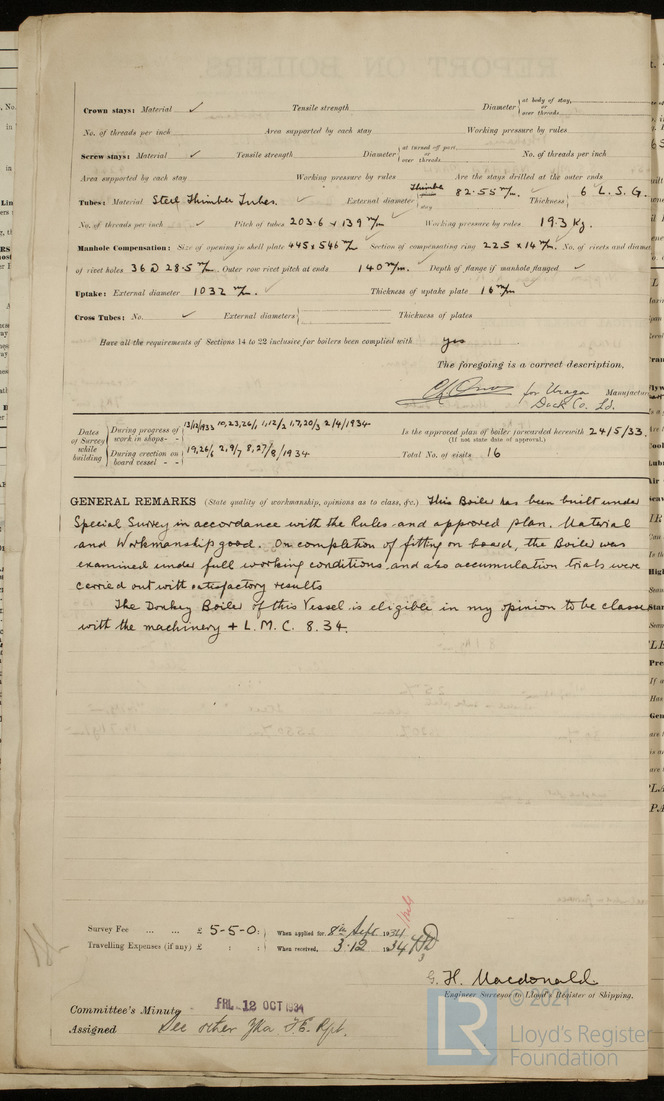 Crown stays: Material ✓ Tensile strength Diameter { at body of stay, or over threads
No. of threads per inch Area supported by each stay Working pressure by rules
Screw stays: Material ✓ Tensile strength Diameter { at turned off part, or over threads No. of threads per inch
Area supported by each stay Working pressure by rules Are the stays drilled at the outer ends
Tubes: Material Steel Thimble Tubes. ✓ External diameter { Thimble stay 82.55 m/m. ✓ Thickness { 6 L.S.G.
No. of threads per inch ✓ Pitch of tubes 203.6 x 139 m/m ✓ Working pressure by rules 19.3 Kg.
Manhole Compensation: Size of opening in shell plate 445 x 546 m/m Section of compensating ring 225 x 14 m/m. No. of rivets and diamet
of rivet holes 36 @ 28.5 m/m. Outer row rivet pitch at ends 140 m/m. Depth of flange if manhole flanged ✓
Uptake: External diameter 1032 m/m. ✓ Thickness of uptake plate 16 m/m
Cross Tubes: No. ✓ External diameters { Thickness of plates
Have all the requirements of Sections 14 to 22 inclusive for boilers been complied with yes
The foregoing is a correct description,
for Uraga Manufactur
Dock Co. Ld.
Dates of Survey while building
During progress of work in shops - - 13/12/1933 10,23,26/1 1,12/2 1,7,20/3 2/4/1934
During erection on board vessel - - 19,26/6 2,9/7 8,27/8/1934
Is the approved plan of boiler forwarded herewith 24/5/33.
(If not state date of approval.)
Total No. of visits 16
GENERAL REMARKS (State quality of workmanship, opinions as to class, &c.) This Boiler has been built under
Special Survey in accordance with the Rules and approved plan. Material
and Workmanship good. On completion of fitting on board, the Boiler was
examined under full working conditions, and also accumulation trials were
carried out with satisfactory results
The Donkey Boiler of this Vessel is eligible in my opinion to be classe
with the machinery + L.M.C. 8.34.
Survey Fee ... ... £ 5-5-0: } When applied for, 8th Sept 1934
Travelling Expenses (if any) £ : : } When received, 3.12 1934
G. H. Macdonald
Engineer Surveyor to Lloyd's Register of Shipping.
Committee's Minute FRI. 12 OCT 1934
Assigned See other Yka F.E. Rpt.
© 2021
LR Lloyd's Register
Foundation